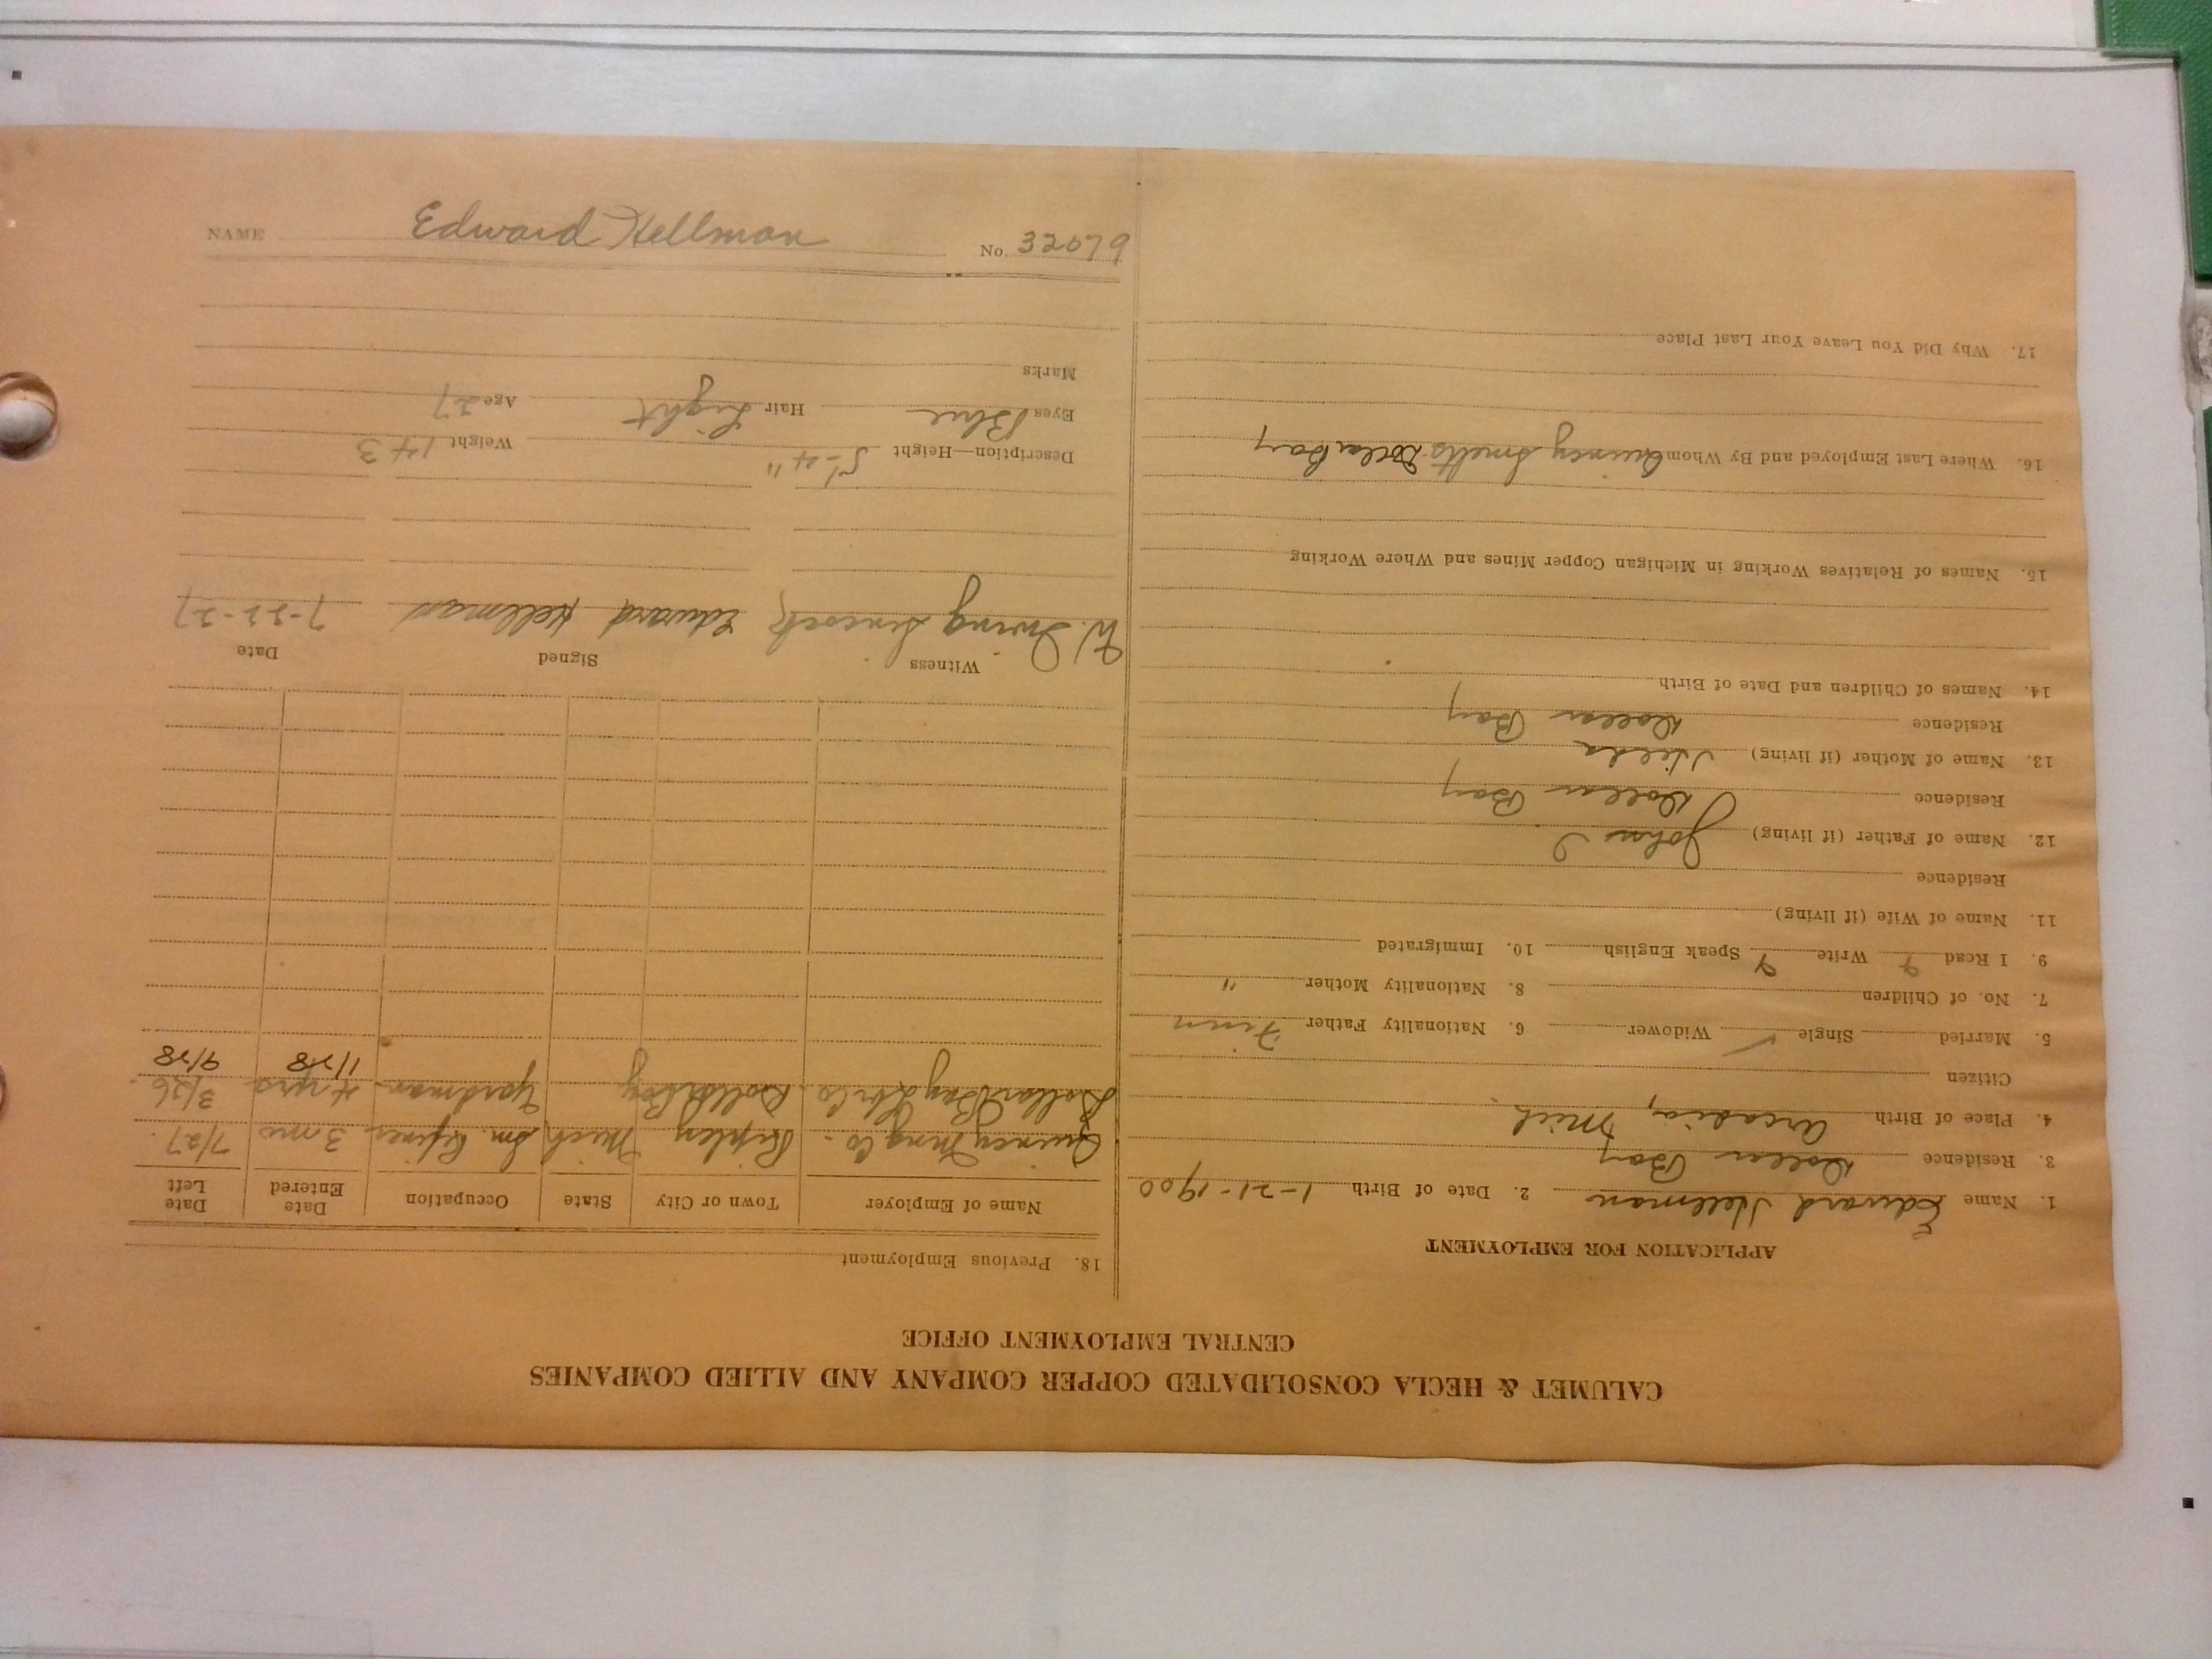 NAME Edward Hellman No. 32079
CALUMET & HECLA CONSOLIDATED COPPER COMPANY AND ALLIED COMPANIES
CENTRAL EMPLOYMENT OFFICE
APPLICATION FOR EMPLOYMENT
1. Name Edward Hellman 2. Date of Birth 1-21-1900
3. Residence Dollar Bay
4. Place of Birth Arcadia, Mich.
Citizen
5. Married Single ✓ Widower 6. Nationality Father Finn
7. No. of Children 8. Nationality Mother "
9. I Read Write Speak English 10. Immigrated
11. Name of Wife (if living)
Residence
12. Name of Father (if living) John I
Residence Dollar Bay
13. Name of Mother (if living) Hilda
Residence Dollar Bay
14. Names of Children and Date of Birth
15. Names of Relatives Working in Michigan Copper Mines and Where Working
16. Where Last Employed and By Whom Quincy Smelts Dollar Bay
17. Why Did You Leave Your Last Place
18. Previous Employment
Name of Employer Town or City State Occupation Date Entered Date Left
Quincy Mng Co. Ripley Mich Sm. Refiner 3 mos 7/27.
Dollar Bay Lbr Co. Dollar Bay Yardman 4 yrs 3/26.
1/28 9/28
Witness Signed Date
W. Irving Edward Hellman 7-22-27
Description—Height 5'-4" Weight 143
Eyes Blue Hair Light Age 27
Marks